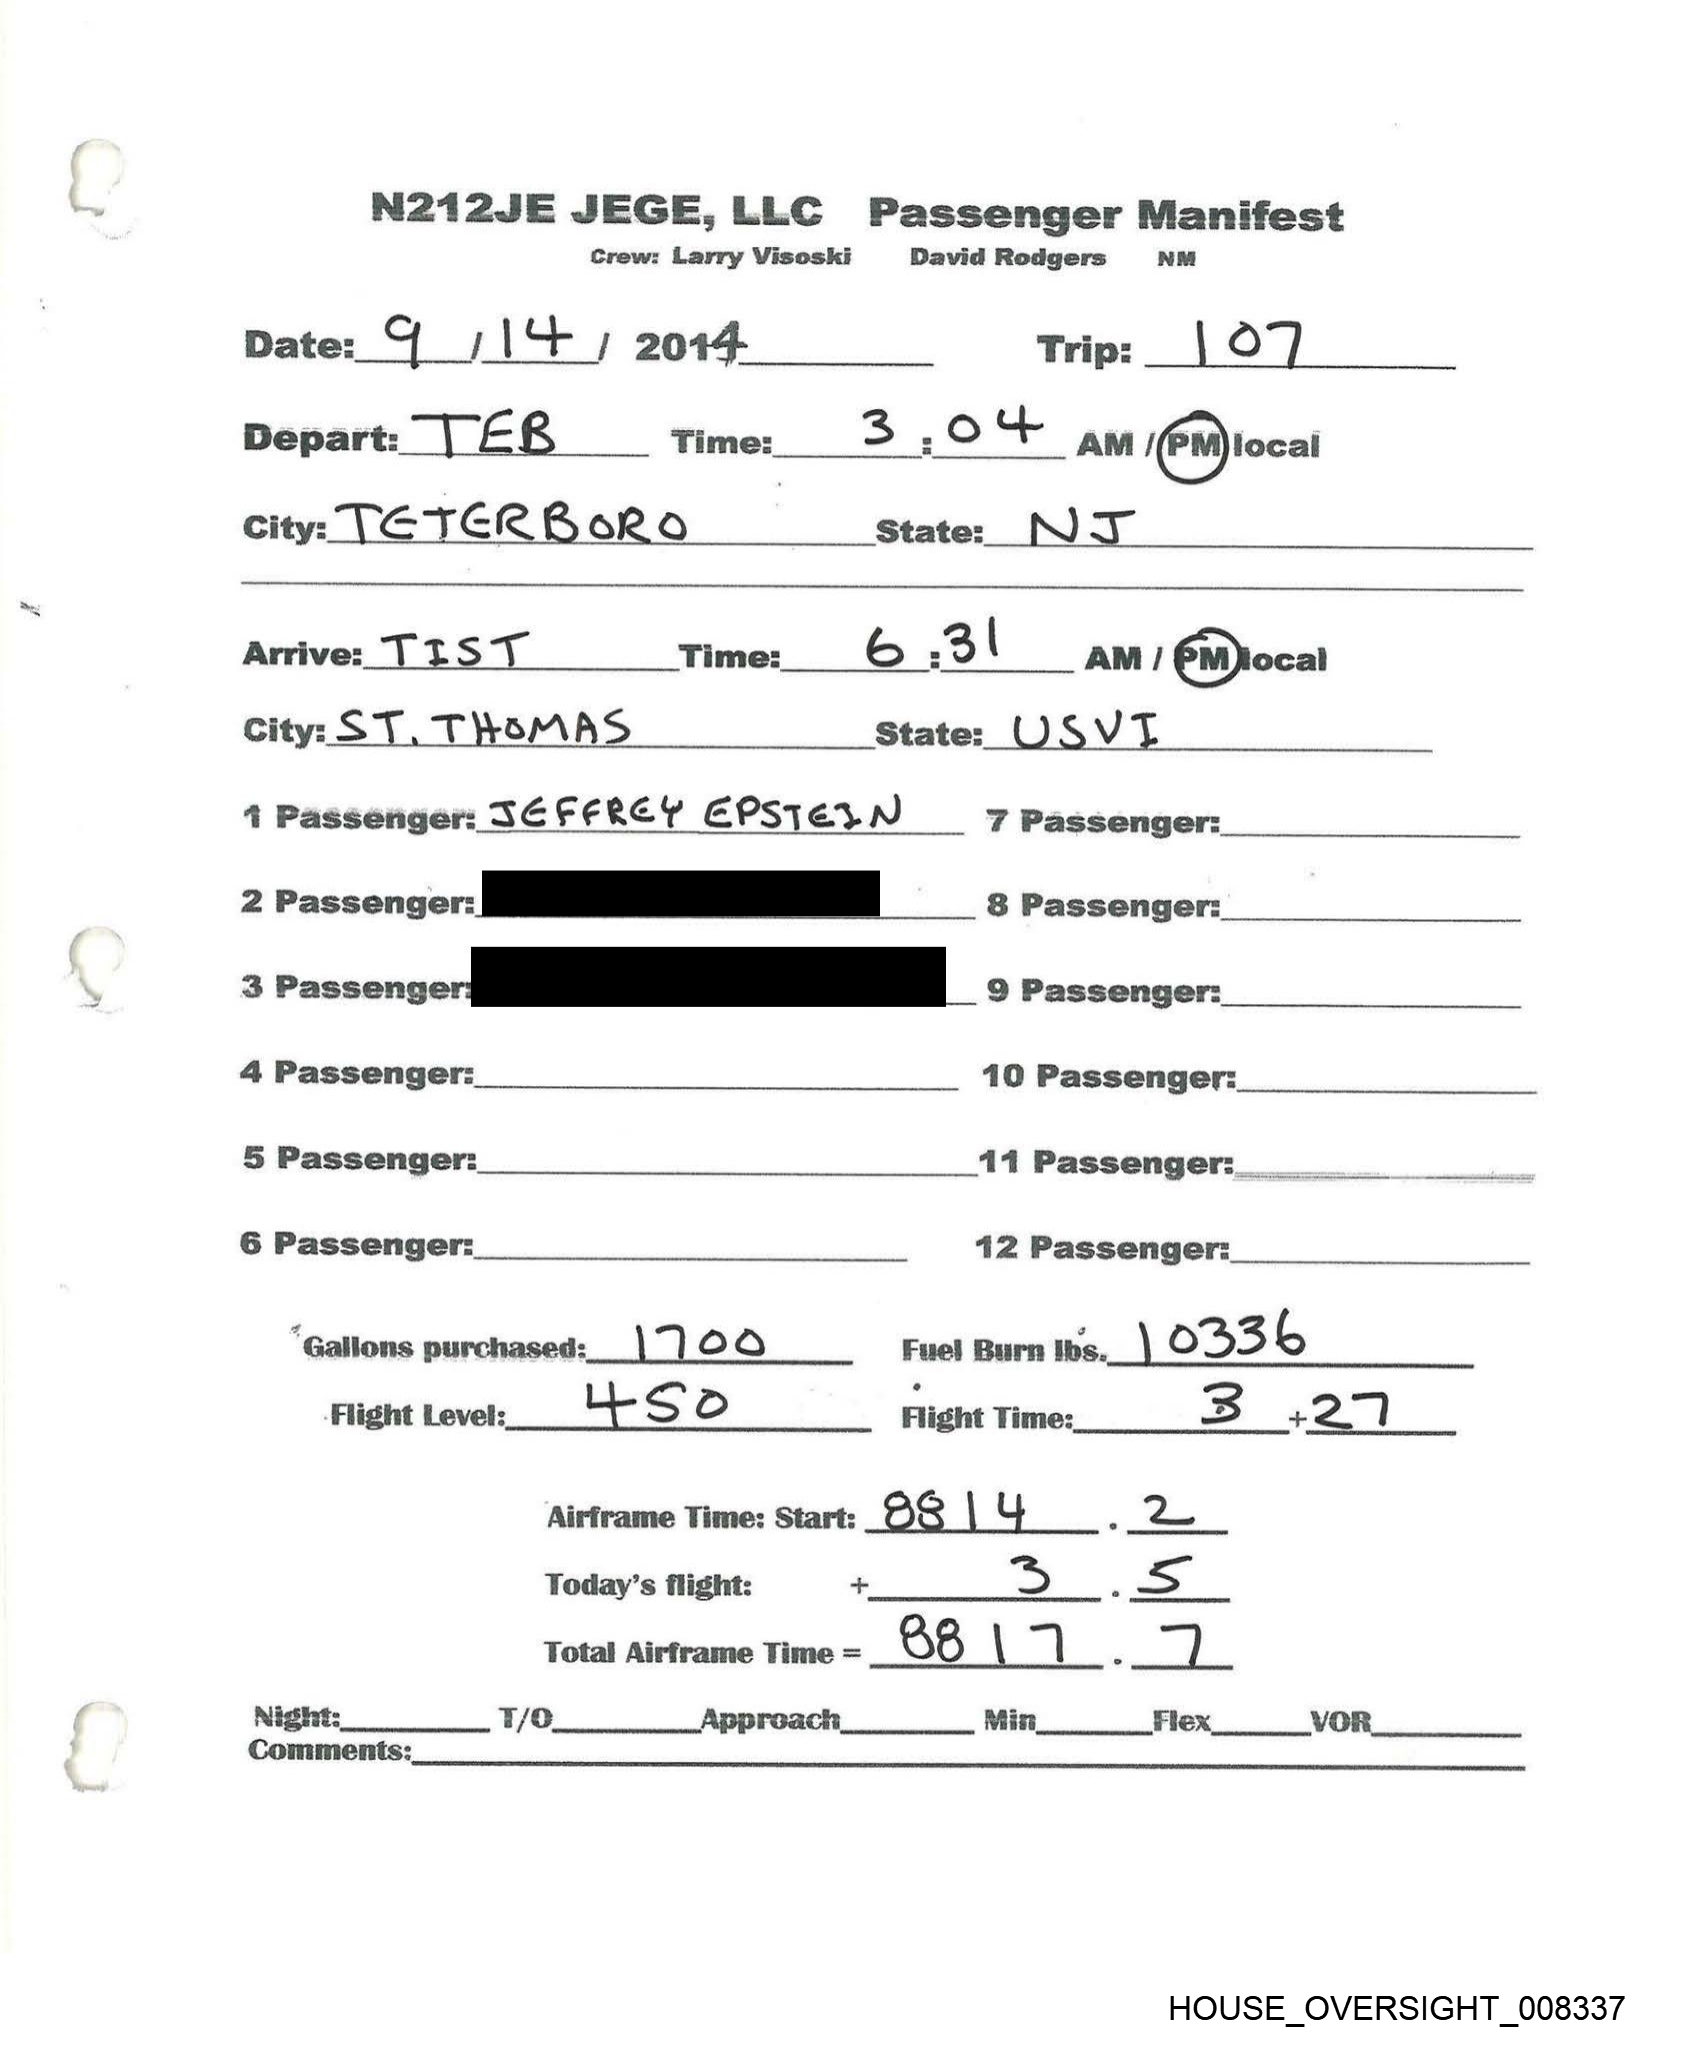 N212JE JEGE, LLC Passenger Manifest
Crew: Larry Visoski David Rodgers NM
Date: 9 / 14 / 2014 Trip: 107
Depart: TEB Time: 3 : 04 AM / PM local
City: TETERBORO State: NJ
Arrive: TIST Time: 6 : 31 AM / PM local
City: ST. THOMAS State: USVI
1 Passenger: JEFFREY EPSTEIN 7 Passenger:
2 Passenger: 8 Passenger:
3 Passenger: 9 Passenger:
4 Passenger: 10 Passenger:
5 Passenger: 11 Passenger:
6 Passenger: 12 Passenger:
Gallons purchased: 1700 Fuel Burn lbs. 10336
Flight Level: 450 Flight Time: 3 + 27
Airframe Time: Start: 8814 . 2
Today's flight: + 3 . 5
Total Airframe Time = 8817 . 7
Night: T/O Approach Min Flex VOR
Comments:
HOUSE_OVERSIGHT_008337